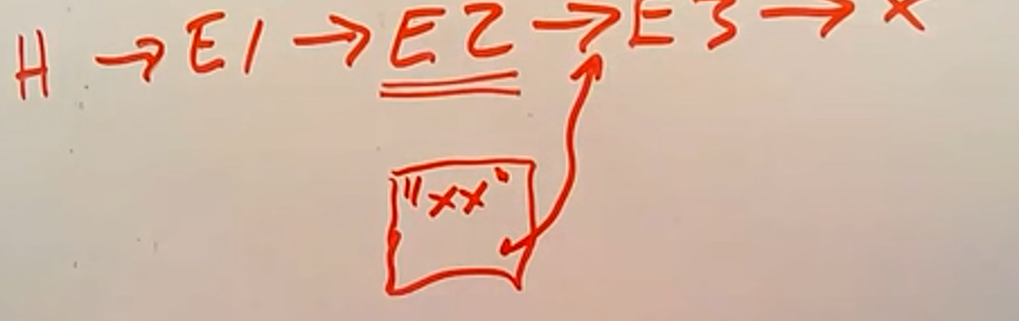 H → E1 → E2 → E3 → x
"xx"